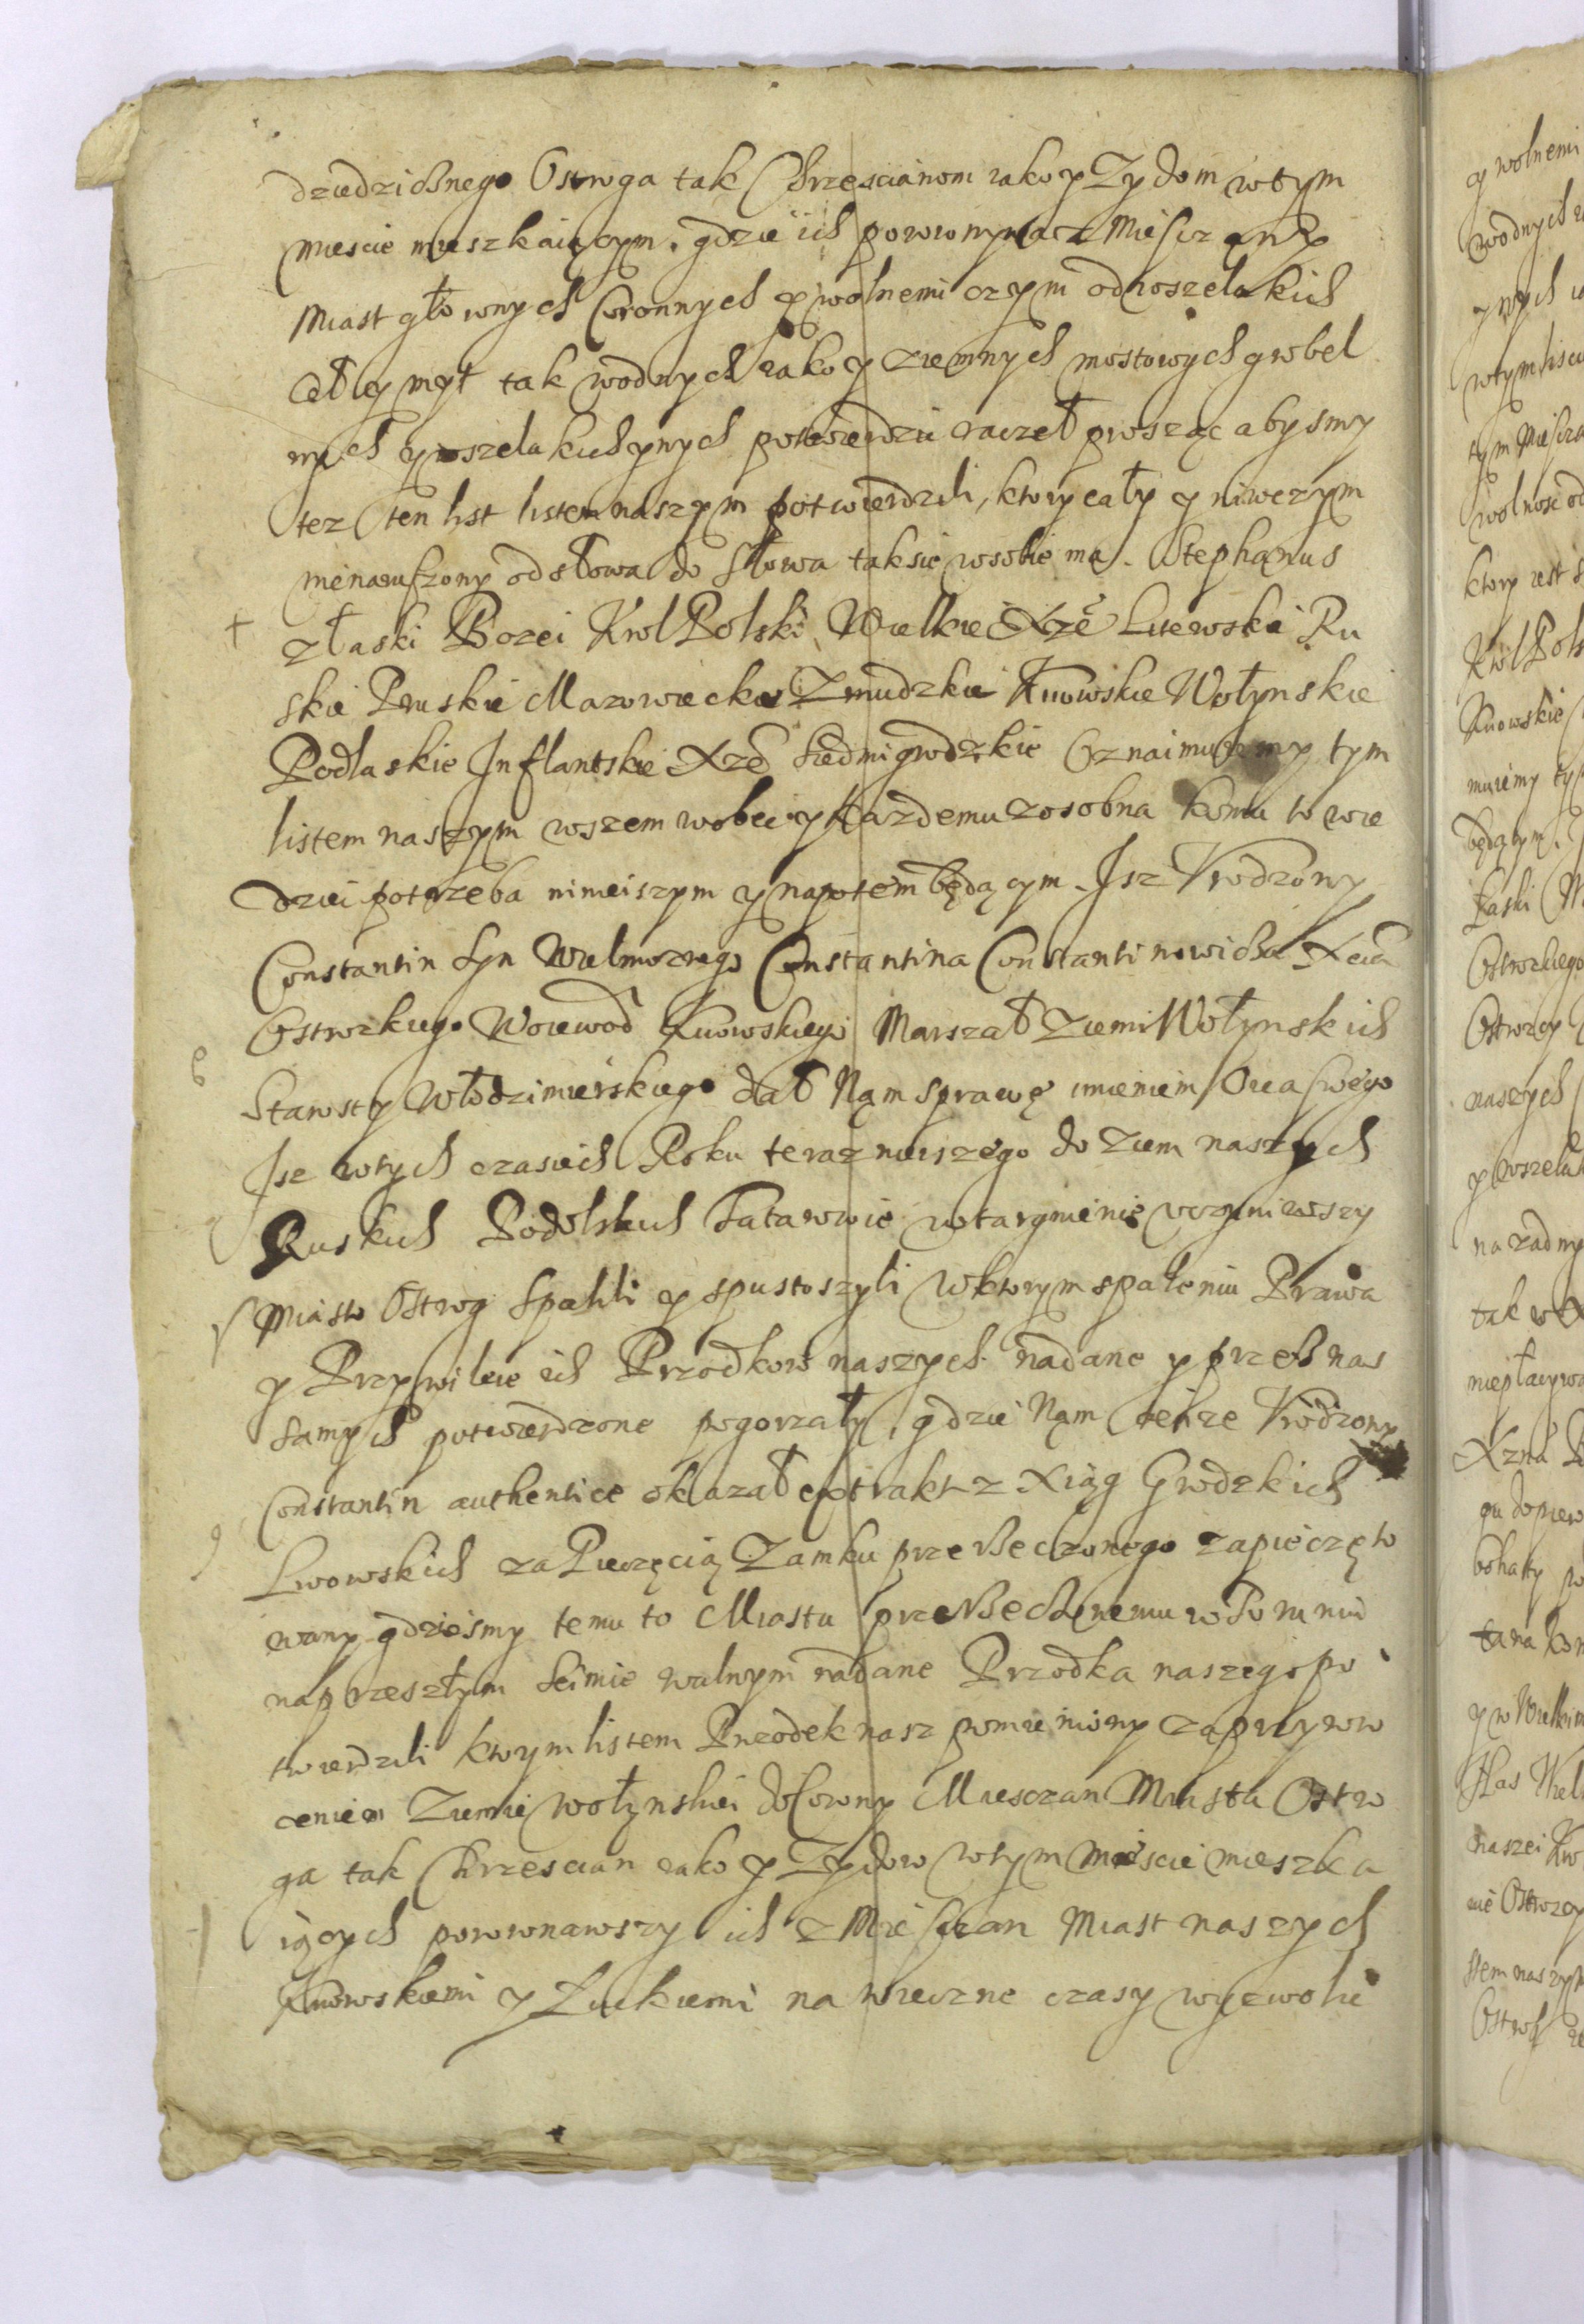 dziedzicznego Ostroga tak Chrzescianom iako y Zydom wtym
miescie mieszkaiącym. gdzie ich porownywa z Miesczany
Miast głownych Coronnych y wolnemi czyni od wszelakich
ceł y myt tak wodnych iako y ziemnych mostowych grobel
nych y wszelakich ynych potwierdzic raczeł prosząc abysmy
tez ten list listem naszym potwierdzili, ktory cały y niwczym
nienaruszony od słowa do słowa tak sie wsobie ma. Stephanus
złaski Bozei Krol Polski Wielkie Xże Litewskie Ru
skie Pruskie Mazowieckie Zmudzkie Kiiowskie Wołynskie
Podlaskie Inflantskie Xże Siedmigrodzkie Oznaimuiemy tym
listem naszym wszem wobec y kazdemu zosobna komu to wie
dziec potrzeba ninieiszym y napotem będącym. Isz Vrodzony
Constantin Syn Wielmoznego Constantina Constantinowicza Xcia
Ostrozkiego Woiewod Kiiowskiego Marszał Ziemi Wołynskich
Starosty Włodzimierskiego dał Nam sprawę imieniem Oica swego
Isz wtych czasiech Roku teraznieiszego do Ziem naszych
Ruskich Podolskich Tatarowie wtargnienie vczyniwszy
Miasto Ostrog spalili y spustoszyli wktorym spaleniu Prawa
y Przywileie ich Przodkow naszych nadane y przez nas
samych potwierdzone pogorzały, gdzie Nam tenze Vrodzony
Constantin authentice okazał extrakt z Xiąg Grodzkich
Lwowskich za Pieczęcią Zamku przerzeczonego zapieczęto
wany gdziesmy temu to Miastu przerzeczonemu w Toruniu
na przeszłym Seimie walnym nadane Przodka naszego po
twierdzili ktorym listem Przodek nasz pomieniony za przywro
ceniem Ziemie Wołynskiei do Corony Miesczan Miasta Ostro
ga tak Chrzescian iako y Zydow wtym Miescie mieszka
iących porownawszy ich z Miesczan Miast naszych
Kiiowskiemi y Łuckiemi na wieczne czasy wyzwolic